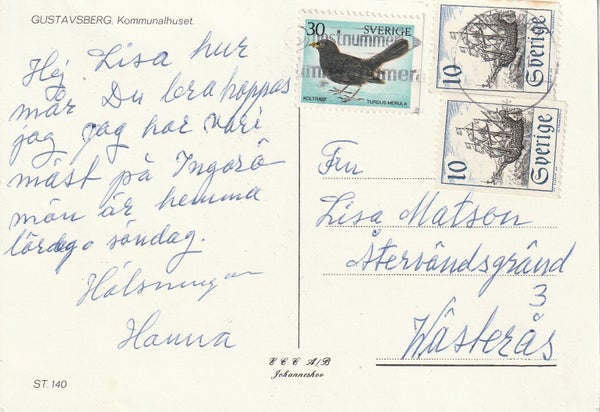 GUSTAVSBERG. Kommunalhuset.
Hej Lisa hur
mår Du bra hoppas
jag jag har vari
mäst på Ingarö
män är hemma
lördag o söndag.
Hälsningar
Hanna
ST. 140
E C C A/B
Johanneshov
30
SVERIGE
KOLTRAST
TURDUS MERULA
Postnummer
10
Sverige
10
Sverige
Fru
Lisa Matson
Återvändsgränd
3
Västerås